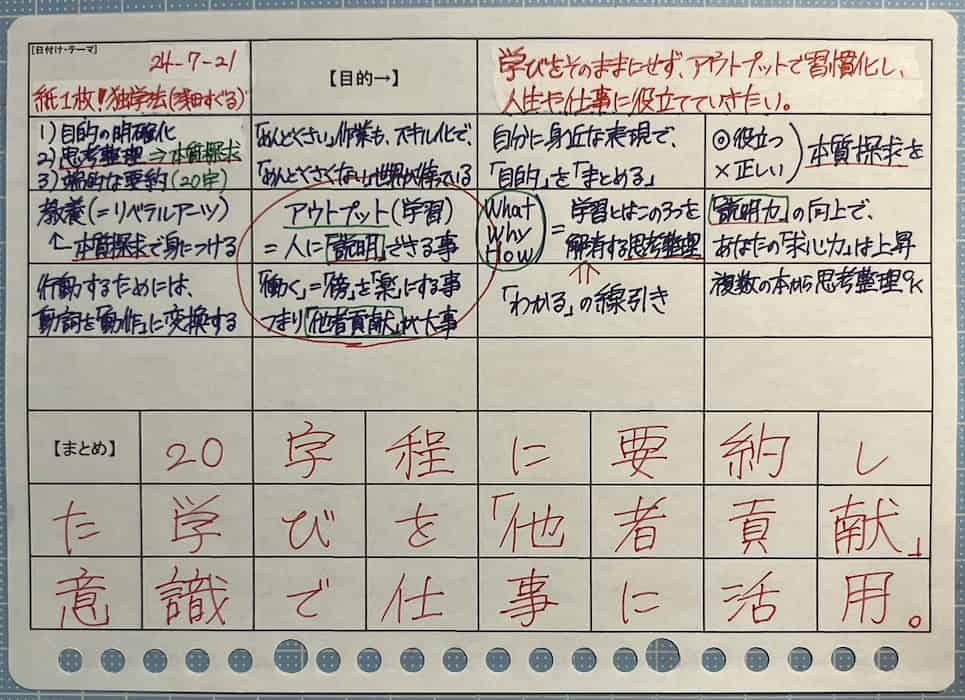 [日付け・テーマ]
24-7-21
紙1枚!独学法(浅田すぐる)
【目的→】
学びをそのままにせず、アウトプットで習慣化し、
人生や仕事に役立てていきたい。
1) 目的の明確化
2) 思考整理⇒本質探求
3) 端的な要約(20字)
「めんどくさい」作業も、スキル化で、
「めんどくさくない」世界が待っている
自分に身近な表現で、
「目的」を「まとめる」
◎ 役立つ
× 正しい
本質探求を
教養(=リベラルアーツ)
←本質探求で身につける
アウトプット(学習)
=人に「説明」できる事
What
Why
How
= 学習とはこの3つを
解消する思考整理
「説明力」の向上で、
あなたの「求心力」は上昇
行動するためには、
動詞を「動作」に変換する
「働く」=「傍」を「楽」にする事
つまり「他者貢献」が大事
⇑
「わかる」の線引き
複数の本から思考整理OK
【まとめ】 20字程に要約し
た学びを「他者貢献」
意識で仕事に活用。